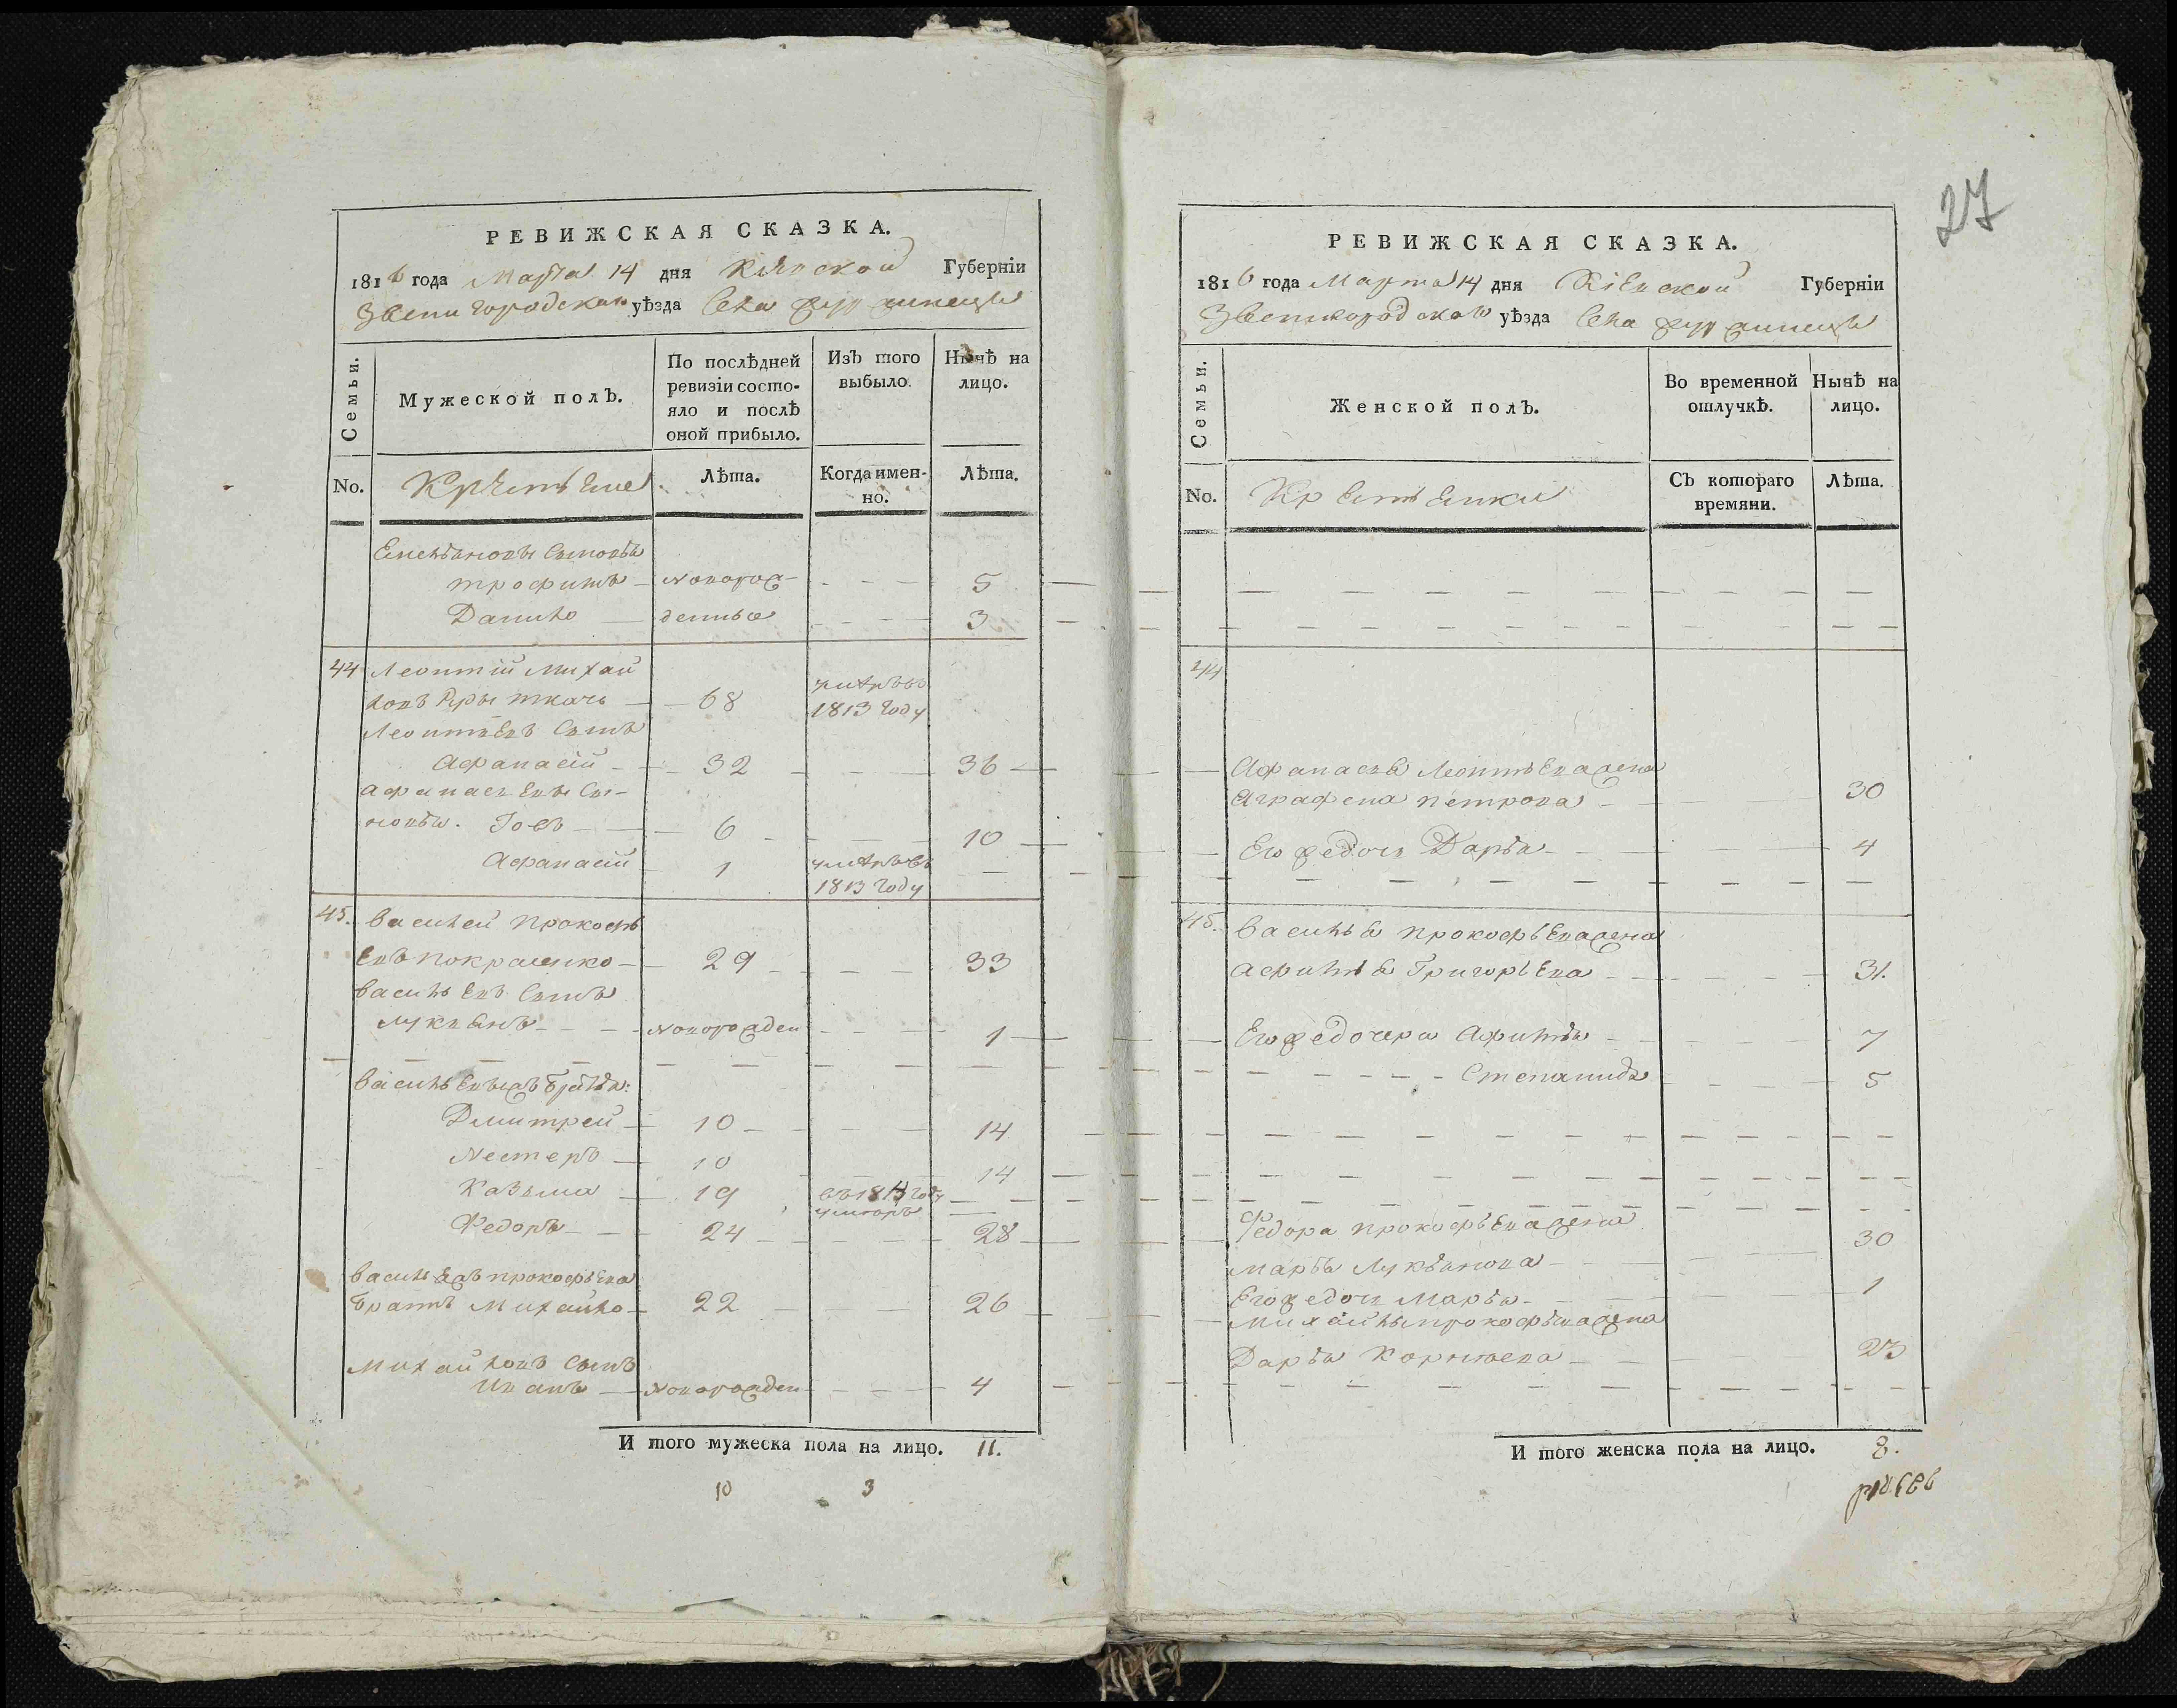 РЕВИЖСКАЯ СКАЗКА.
1816 года Марта 14 дня Киевской Губерніи
Звенигородскаго уѣзда Села
Семьи.
Мужеской полъ.
По послѣдней
ревизіи состо-
яло и послѣ
оной прибыло.
Изъ того
выбыло.
Нынѣ на
лицо.
No.
Крестьяне
Лѣта.
Когда имен-
но.
Лѣта.
Емельяновы Сыновья
трофимъ новорож- 5
Данило денные 3
44 Леонтій Михай
ловъ ткачь 68 умре въ
1813 году
Леонтьевъ Сынъ
Афанасій 32 36
Афанасьевы Сы-
новья. Іовъ 6 10
Афанасій 1 умре въ
1813 году
45. Василей Прокофь
евъ покрашенко 29 33
Васильевъ Сынъ
Лукьянъ новорожден 1
Васильевы братья:
Дмитрей 10 14
Нестеръ 10 14
Казьма 19 въ 1813 году
умеръ
Федоръ 24 28
Василья прокофьева
братъ Михайло 22 26
Михайловъ Сынъ
Иванъ новорожден 4
И того мужеска пола на лицо. 11.
10 3
27
РЕВИЖСКАЯ СКАЗКА.
1816 года Марта 14 дня Кіевской Губерніи
Звенигородскаго уѣзда Села
Семьи.
Женской полъ.
Во временной
отлучкѣ.
Нынѣ на
лицо.
No.
Крестьянки
Съ котораго
времяни.
Лѣта.
44
Афанасья Леонтьева жена
Аграфена петрова 30
Его же дочь Дарья 4
45. Василья прокофьева жена
Афимья Григорьева 31.
Его же дочери Афимья 7
Степанида 5
Федора прокофьева жена
Марья Лукьянова 30
Его же дочь Марья 1
Михайлы прокофьева жена
Дарья Корнеева 23
И того женска пола на лицо. 8.